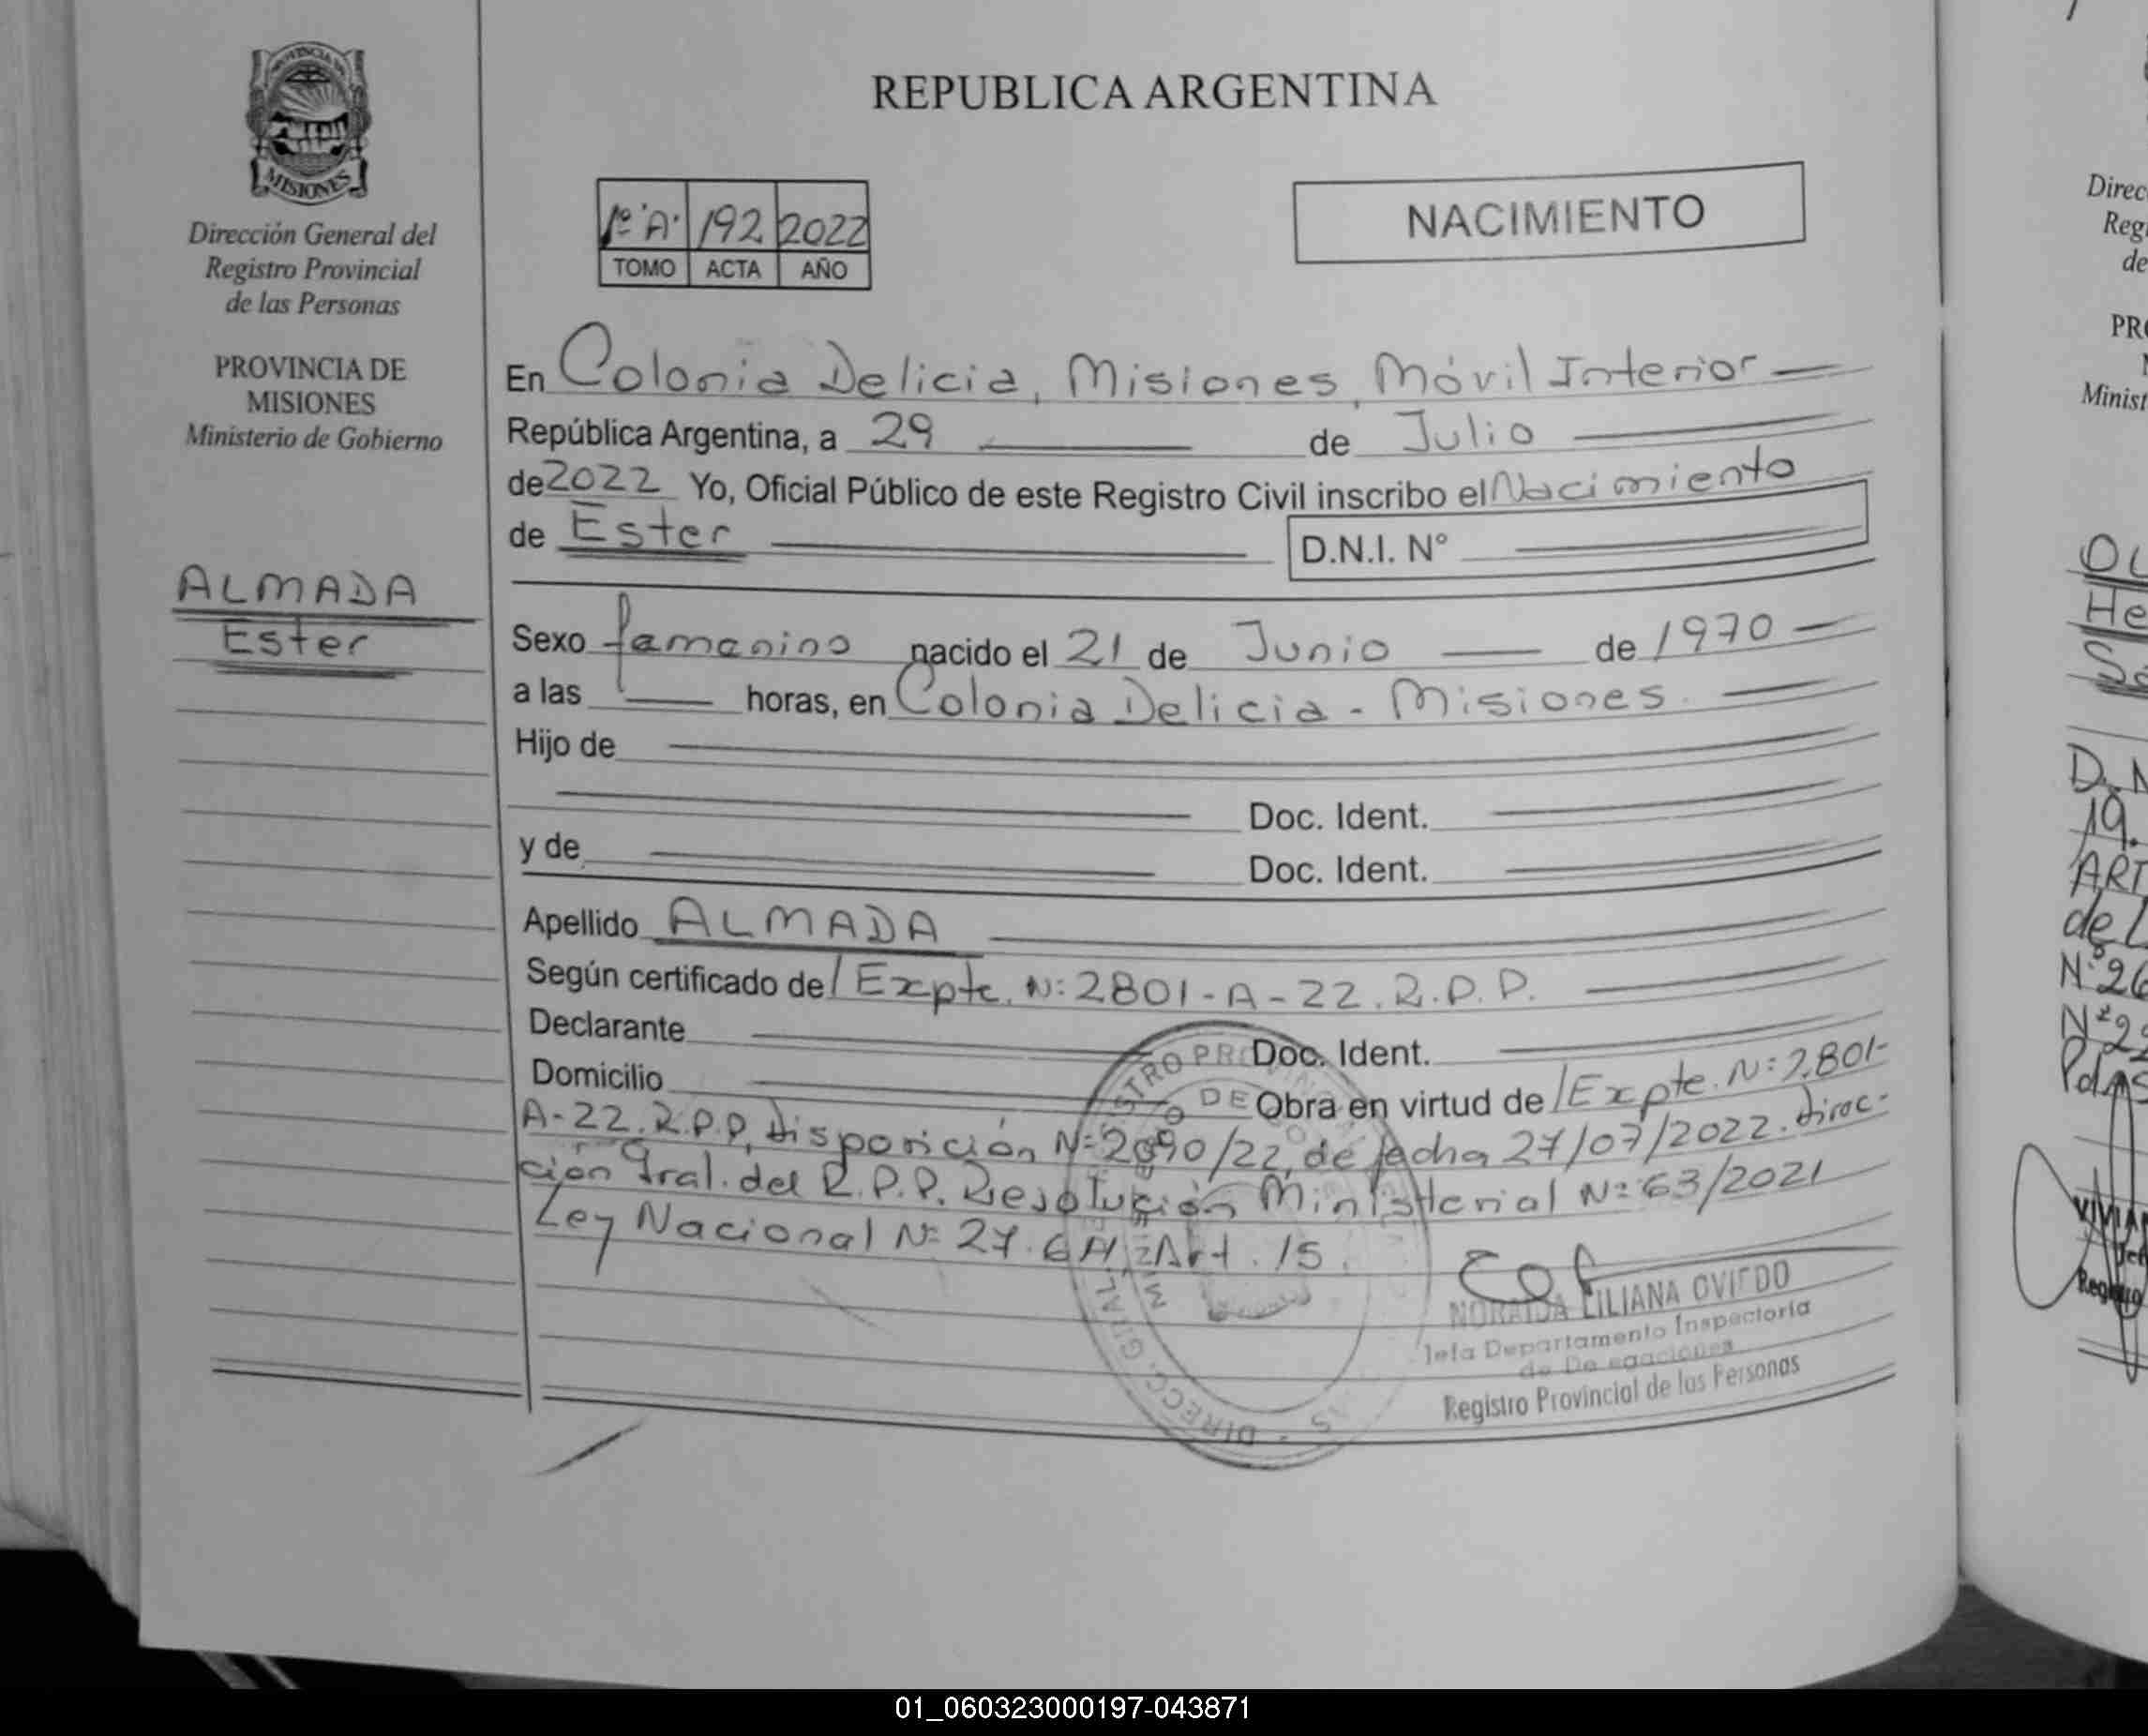 PROVINCIA DE
MISIONES
Dirección General del
Registro Provincial
de las Personas
PROVINCIA DE
MISIONES
Ministerio de Gobierno
ALMADA
Ester
REPUBLICA ARGENTINA
1º "A" 192 2022
TOMO ACTA AÑO
NACIMIENTO
En Colonia Delicia, Misiones, Móvil Interior
República Argentina, a 29 de Julio
de 2022 Yo, Oficial Público de este Registro Civil inscribo el Nacimiento
de Ester D.N.I. N°
Sexo femenino nacido el 21 de Junio de 1970
a las horas, en Colonia Delicia - Misiones.
Hijo de
Doc. Ident.
y de Doc. Ident.
Apellido ALMADA
Según certificado de Expte. Nº 2801-A-22. R.P.P.
Declarante Doc. Ident.
Domicilio
Obra en virtud de Expte. Nº 2801-
A-22. R.P.P, Disposición Nº 2090/22, de fecha 27/07/2022. Direc-
ción Gral. del R.P.P. Resolución Ministerial Nº 63/2021
Ley Nacional Nº 27.611 Art. 15.
NORAIDA LILIANA OVIEDO
Jefa Departamento Inspectoría
de Delegaciones
Registro Provincial de las Personas
Direc
Reg
de
PR
Minist
OL
He
D.N
19.
ART
de L
VIVIAN
Registro
01_060323000197-043871